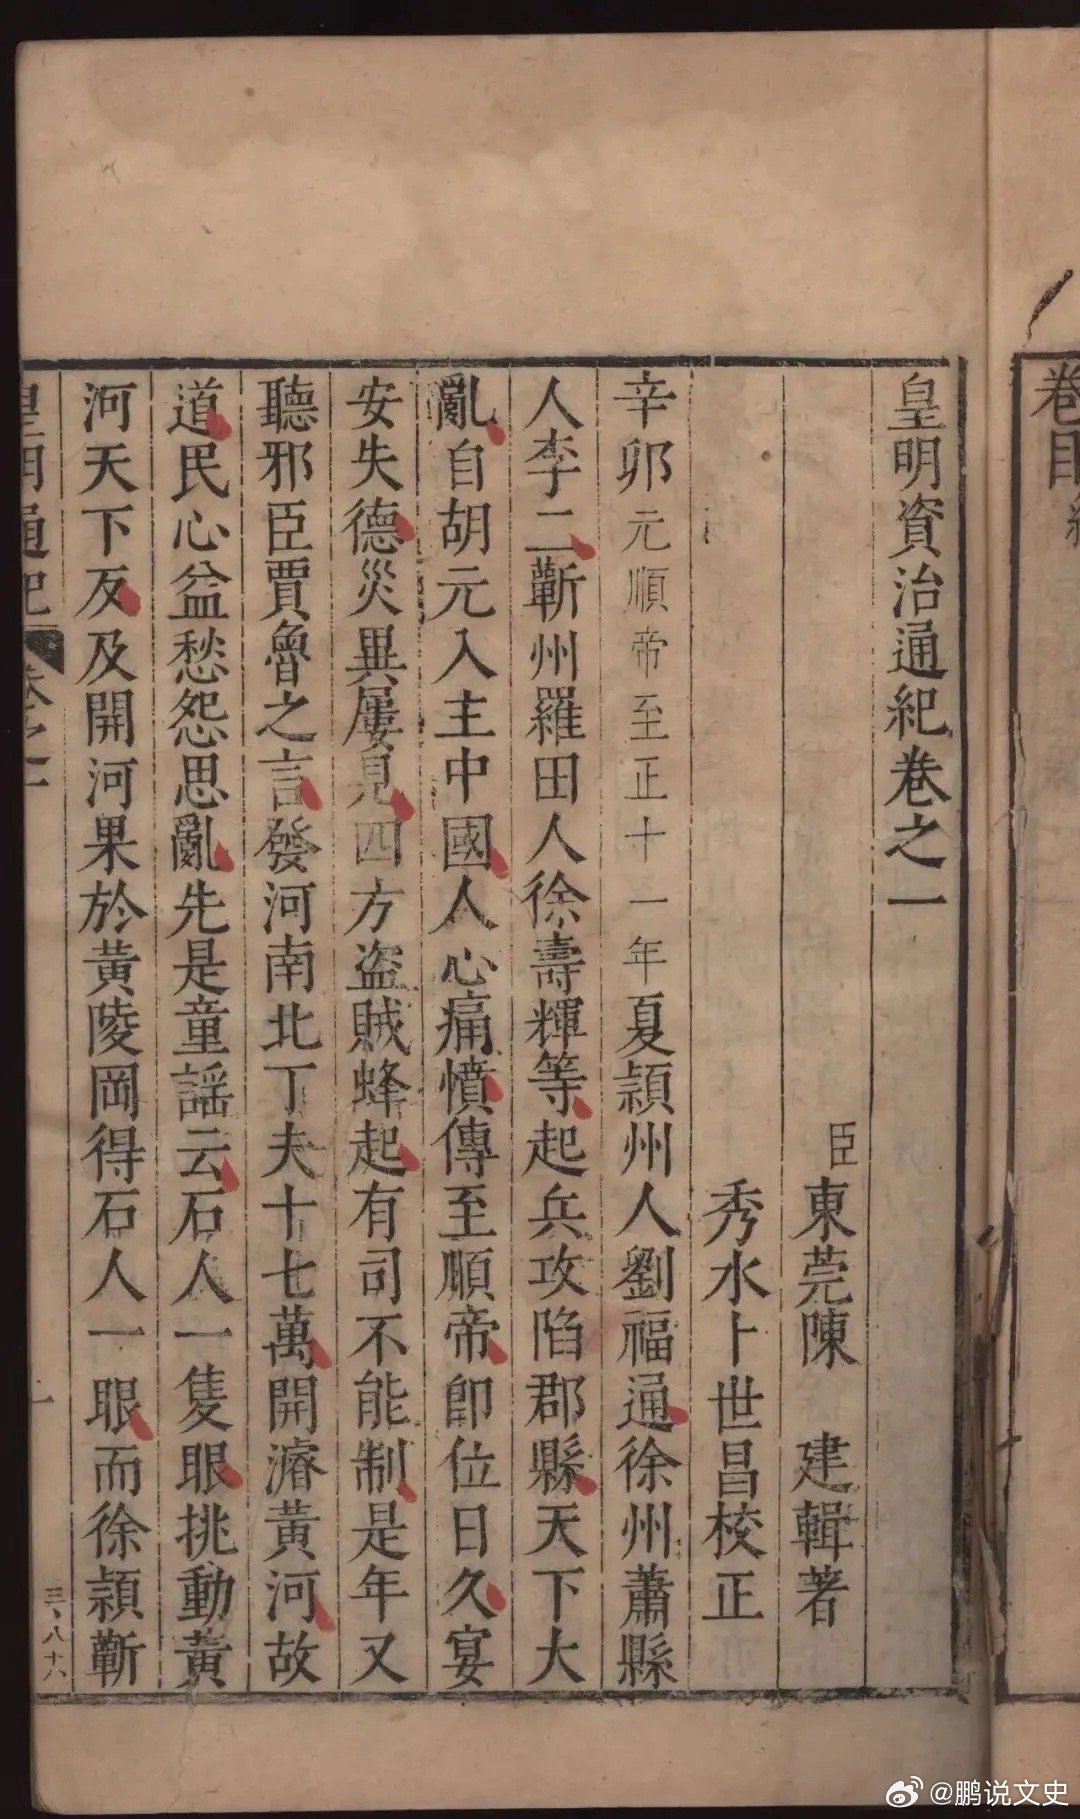 卷目
皇明資治通紀卷之一
臣東莞陳 建輯著
秀水卜世昌校正
辛卯元順帝至正十一年夏潁州人劉福通徐州蕭縣
人李二蘄州羅田人徐壽輝等起兵攻陷郡縣天下大
亂自胡元入主中國人心痛憤傳至順帝卽位日久宴
安失德災異屢見四方盜賊蜂起有司不能制是年又
聽邪臣賈魯之言發河南北丁夫十七萬開濬黃河故
道民心益愁怨思亂先是童謠云石人一隻眼挑動黃
河天下反及開河果於黃陵岡得石人一眼而徐潁蘄
皇明通紀 卷之一 一 三、八十六
@鹏说文史